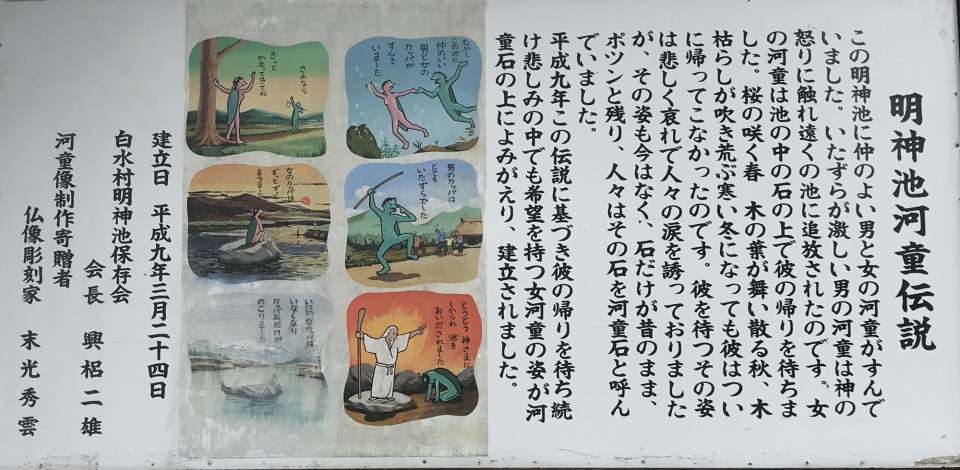 明神池河童伝説
この明神池に仲のよい男と女の河童がすんで
いました。いたずらが激しい男の河童は神の
怒りに触れ遠くの池に追放されたのです。女
の河童は池の中の石の上で彼の帰りを待ちま
した。桜の咲く春　木の葉が舞い散る秋、木
枯らしが吹き荒ぶ寒い冬になっても彼はつい
に帰ってこなかったのです。彼を待つその姿
は悲しく哀れで人々の涙を誘っておりました
が、その姿も今はなく、石だけが昔のまま、
ポツンと残り、人々はその石を河童石と呼ん
でいました。
平成九年この伝説に基づき彼の帰りを待ち続
け悲しみの中でも希望を持つ女河童の姿が河
童石の上によみがえり、建立されました。
むかし
この池に
仲のいい
男と女の
カッパが
すんで
いました
男のカッパは
とても
いたずらでした
とうとう神さまに
しかられ 池を
おいだされました
さよなら
きっと
かえってきてね
女のカッパは
ずっとずっと
まちました
いつか女カッパは
いなくなり
カッパ石だけが
のこりました
建立日　平成九年三月二十四日
白水村明神池保存会
会長　興梠二雄
河童像制作寄贈者
仏像彫刻家　末光秀雲